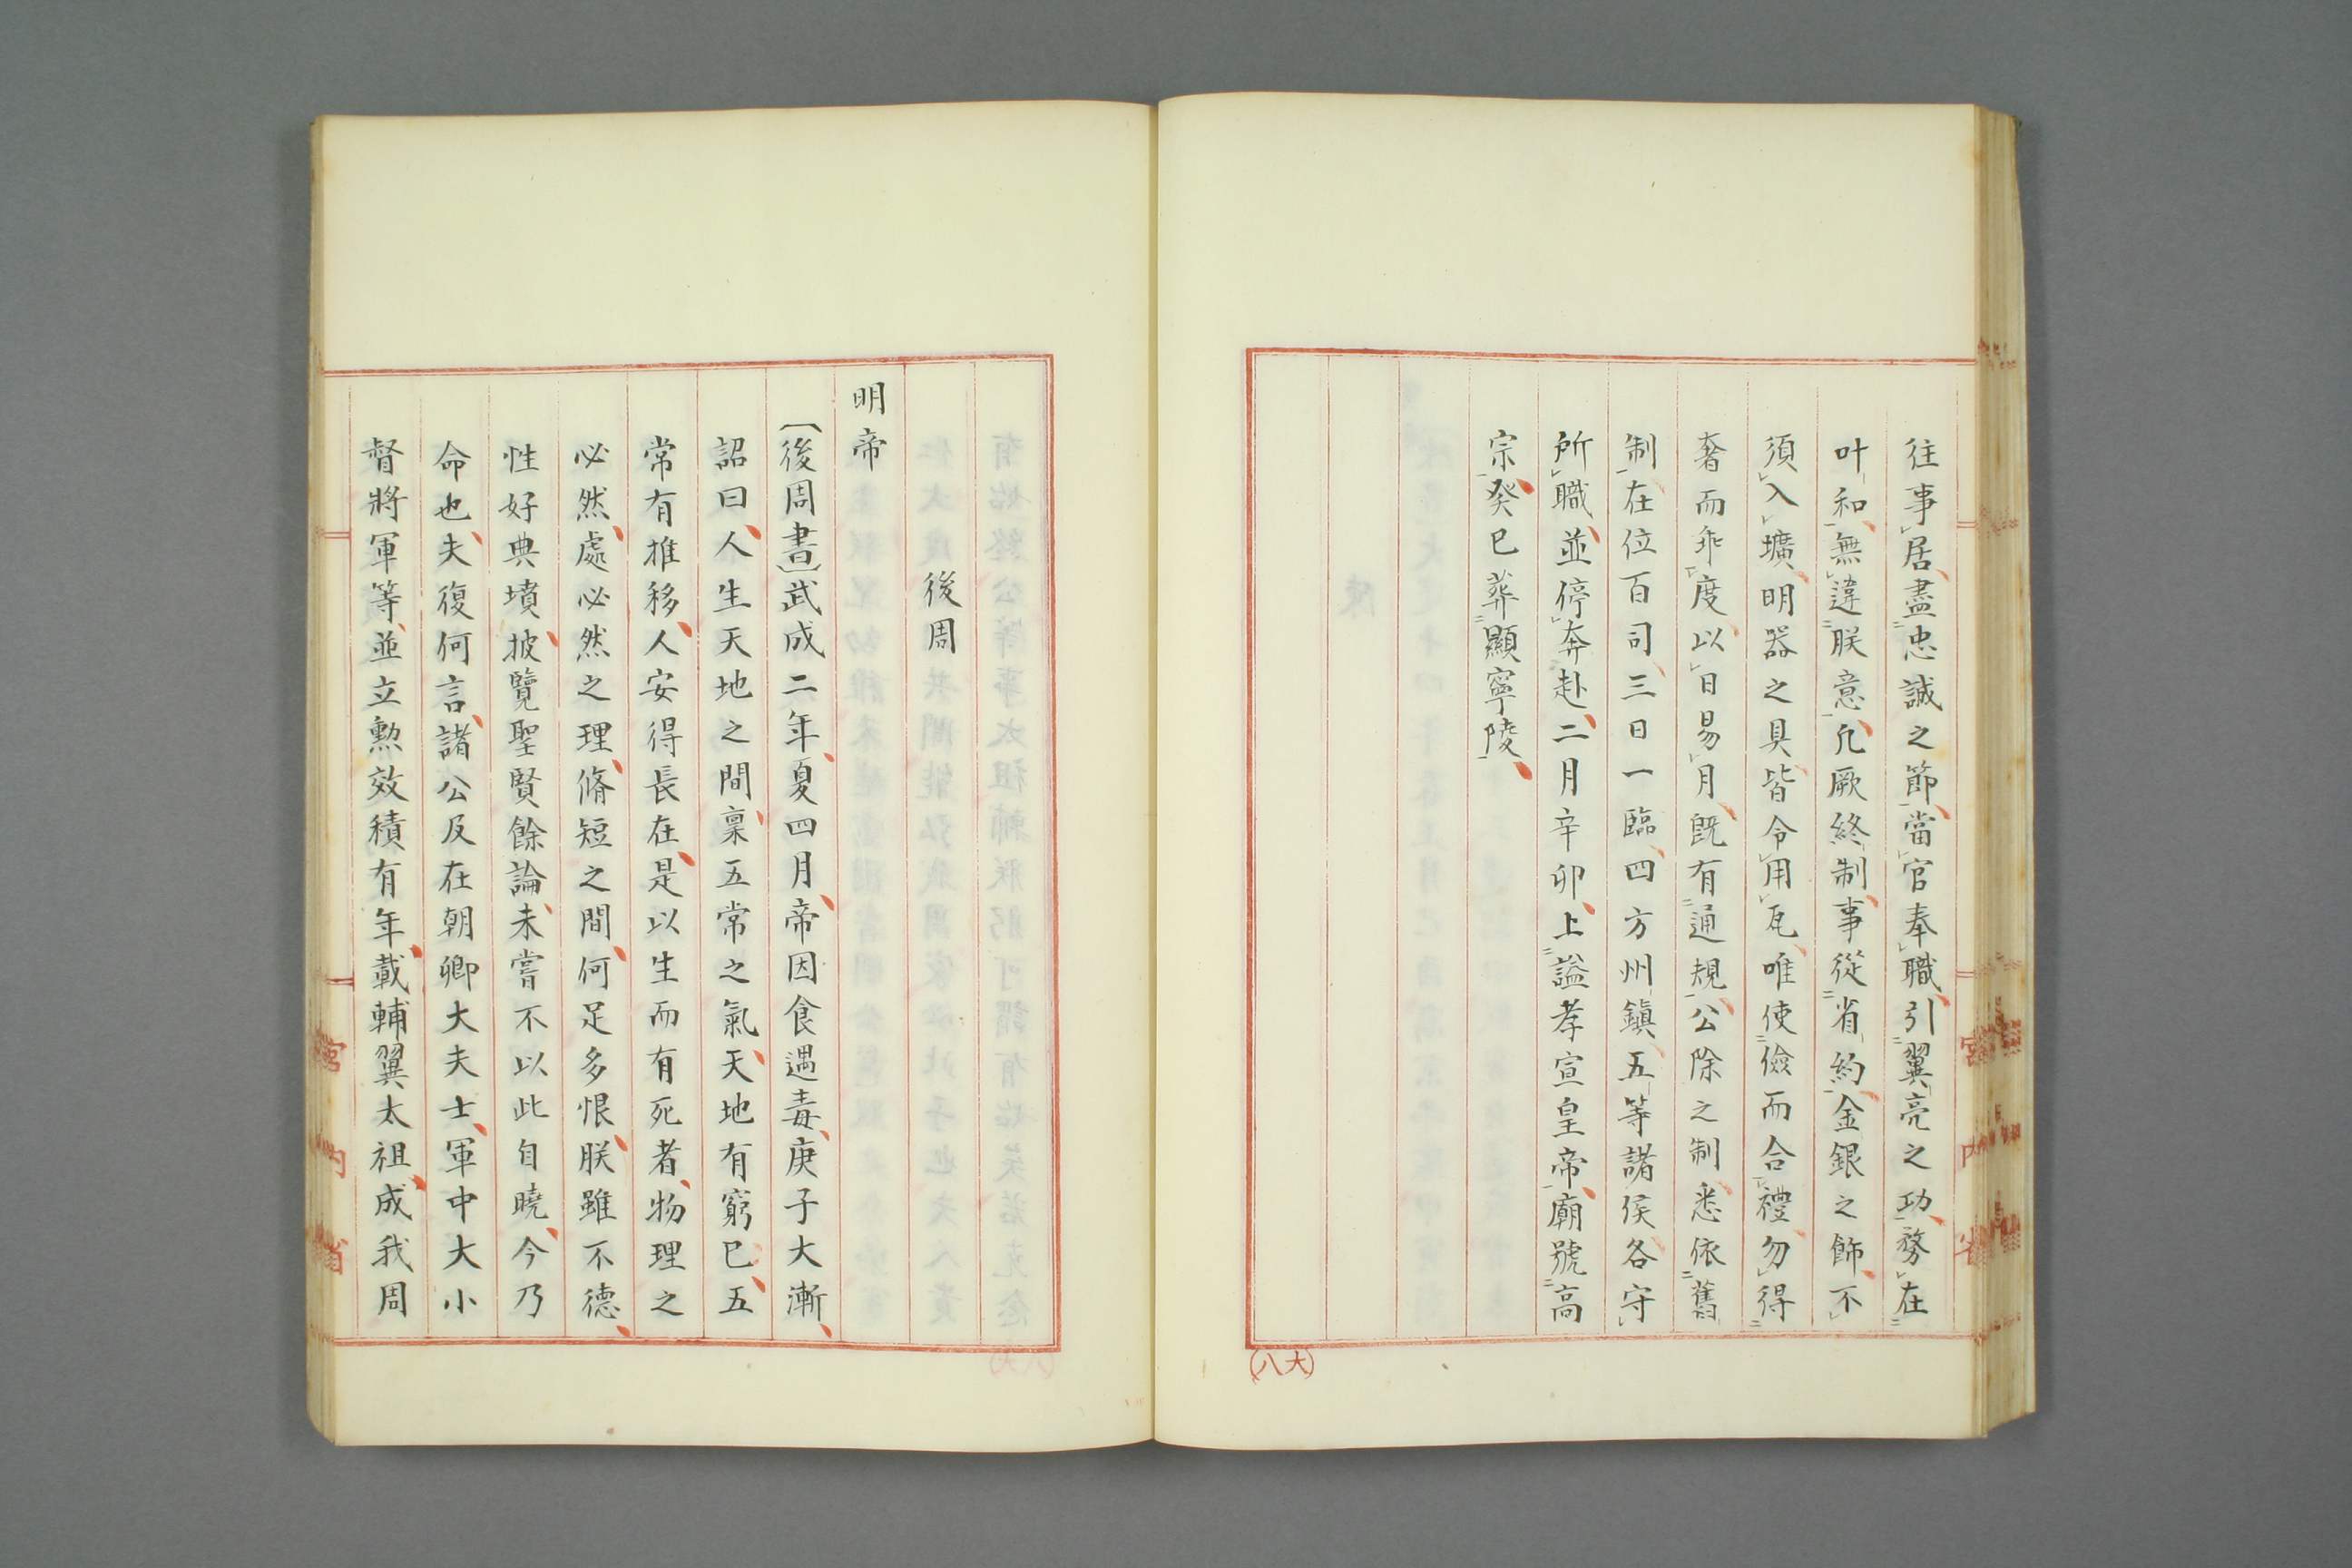 往事居盡忠誠之節當官奉職引翼亮之功務在
叶和無違朕意凢厥終制事從省約金銀之飾不
須入壙明器之具皆令用瓦唯使儉而合禮勿得
奢而乖度以日易月旣有通規公除之制悉依舊
制在位百司三日一臨四方州鎮五等諸侯各守
所職並停奔赴二月辛卯上謚孝宣皇帝廟號高
宗癸巳葬顯寧陵
(六八)
後周
明帝
〔後周書〕武成二年夏四月帝因食遇毒庚子大漸
詔曰人生天地之間稟五常之氣天地有窮已五
常有推移人安得長在是以生而有死者物理之
必然處必然之理脩短之間何足多恨朕雖不德
性好典墳披覽聖賢餘論未嘗不以此自曉今乃
命也夫復何言諸公及在朝卿大夫士軍中大小
督將軍等並立勲效積有年載輔翼太祖成我周
宮内省